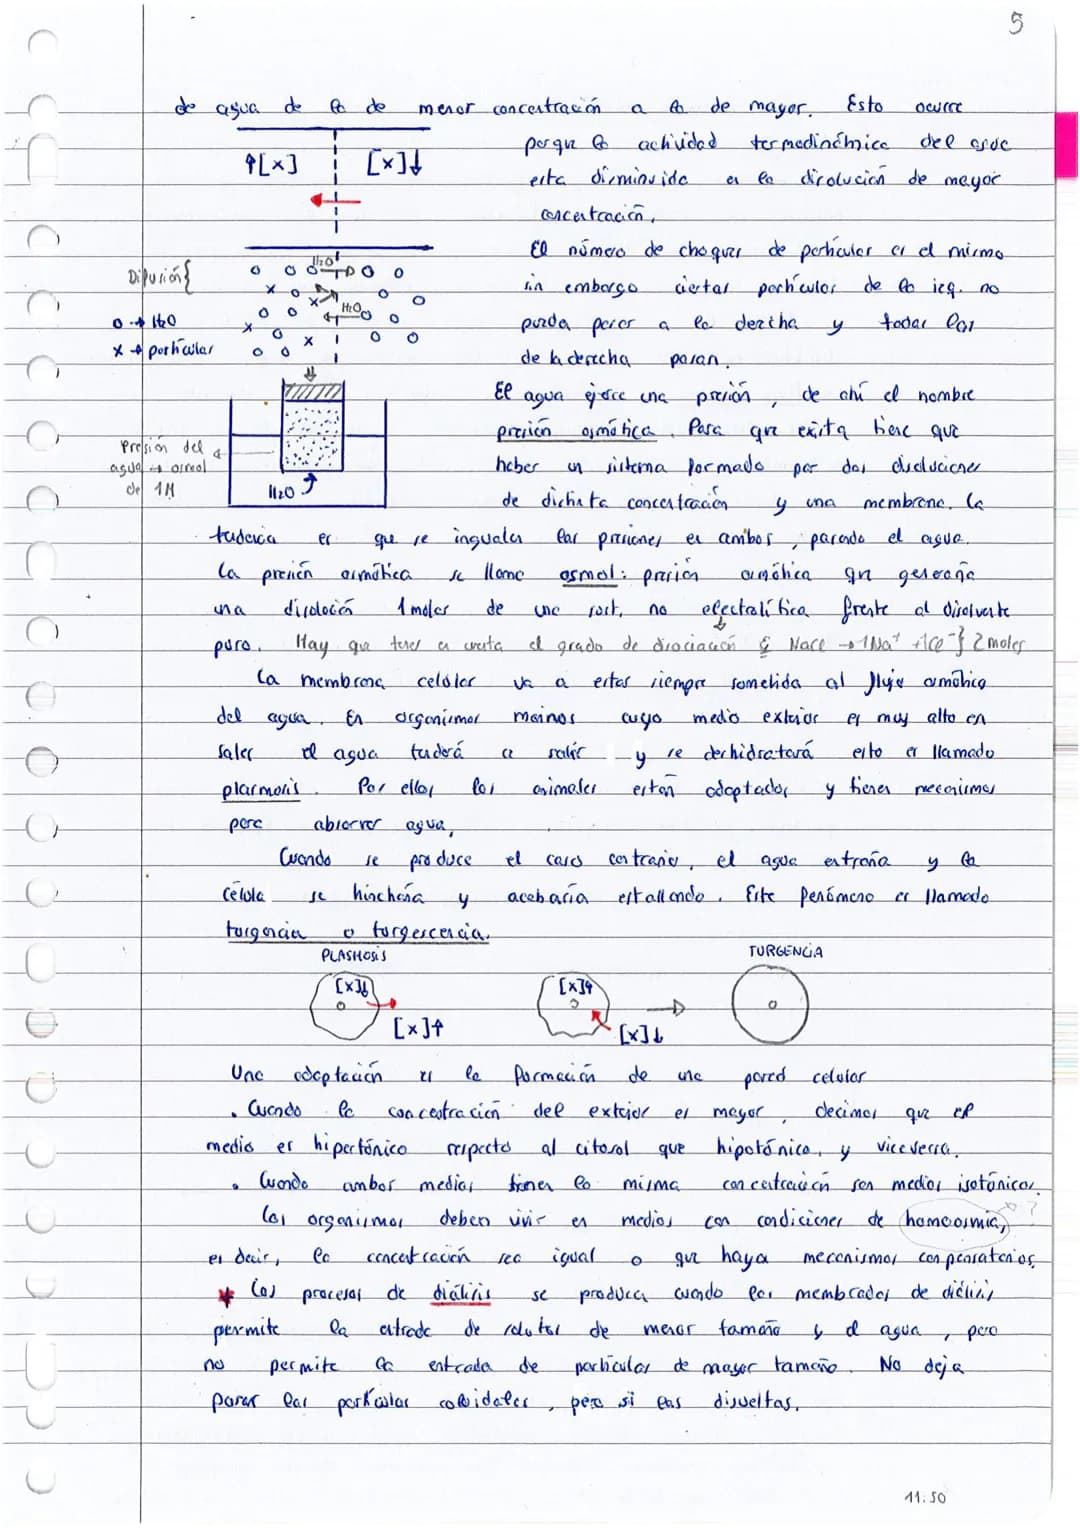 5
de agua de la de menor concentración a la de mayor. Esto ocurre
porque la actividad termodinámica del agua
esta disminuida en la disolución de mayor
concentración.
↑[x] [x]↓
El número de choques de partículas es el mismo
sin embargo ciertas partículas de la izq. no
pueda pasar a la derecha y todas las
de la derecha pasan.
Difusión{
H2O
H2O
o → H2O
x → partículas
El agua ejerce una presión, de ahí el nombre
presión osmótica. Para que exista tiene que
haber un sistema formado por dos disoluciones
de distinta concentración y una membrana. La
Presión del
agua → osmol
de 1M
H2O
tendencia es que se ingualen las presiones en ambos, parando el agua.
La presión osmótica se llama osmol: presión osmótica que generaría
una disolución 1 molar de una sust. no electrolítica frente al disolvente
puro. Hay que tener en cuenta el grado de disociación Ej NaCl → 1Na⁺ + 1Cl⁻} 2 moles
La membrana celular va a estar siempre sometida al flujo osmótico
del agua. En organismos marinos cuyo medio exterior es muy alto en
sales el agua tenderá a salir y se deshidratará esto es llamado
plasmosis. Por ellos los animales están adaptados y tienen mecanismos
para absorver agua.
Cuando se produce el caso contrario, el agua entraría y la
célula se hincharía y acabaría estallando. Este fenómeno es llamado
turgencia o turgescencia.
PLASMOSIS TURGENCIA
[x]↓ [x]↑
[x]↑ [x]↓
Una adaptación es la formación de una pared celular
• Cuando la concentración del exterior es mayor, decimos que el
medio es hipertónico respecto al citosol que hipotónico, y viceversa.
• Cuando ambos medios tienen la misma concentración son medios isotónicos.
Los organismos deben vivir en medios con condiciones de homeosmia, ?
es decir, la concentración sea igual o que haya mecanismos compensatorios.
* Los procesos de diálisis se producen cuando las membranas de diálisis
permite la entrada de solutos de menor tamaño y el agua, pero
no permite la entrada de partículas de mayor tamaño. No deja
pasar las partículas coloidales, pero si las disueltas.
11.50